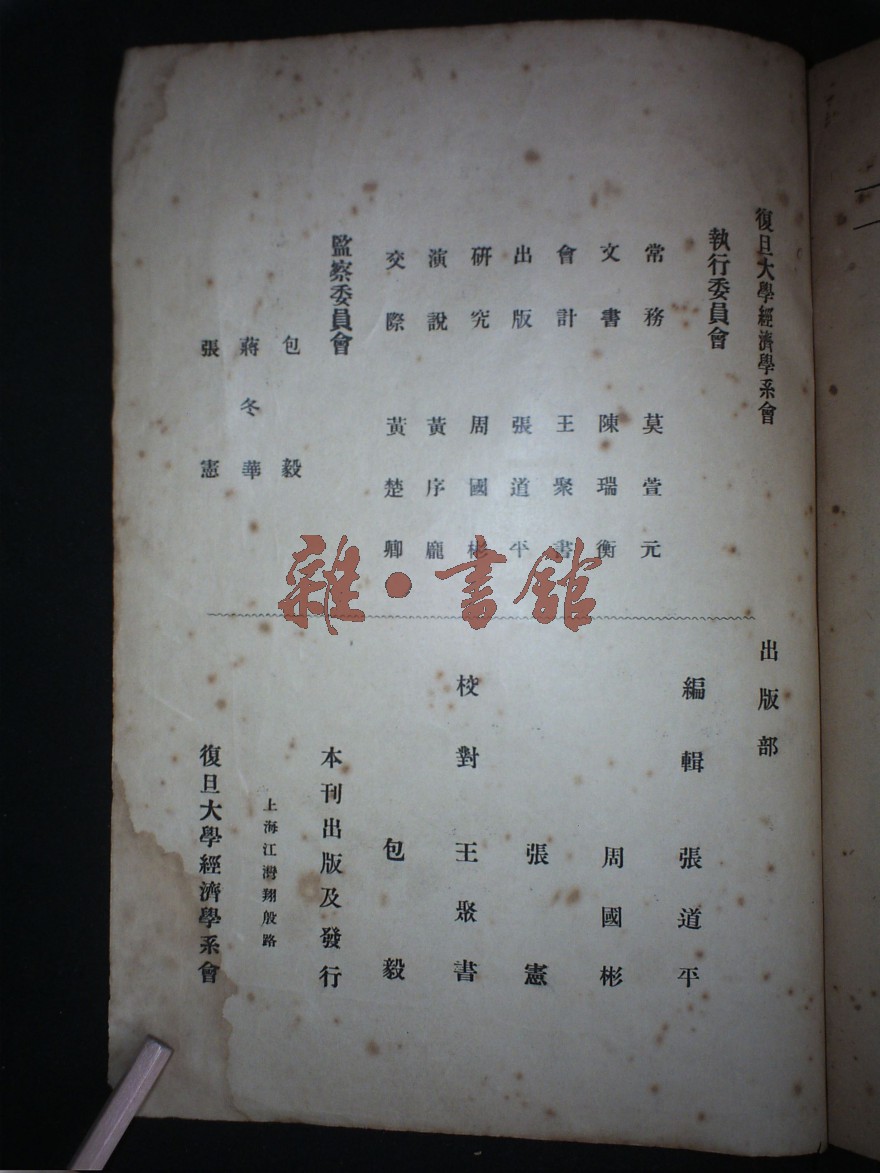 復旦大學經濟學系會
執行委員會
常務 莫萱元
文書 陳瑞衡
會計 王聚書
出版 張道平
研究 周國彬
演說 黃序龐
交際 黃楚卿
監察委員會
包毅
蔣冬華
張憲
出版部
編輯 張道平
周國彬
張憲
校對 王聚書
包毅
本刊出版及發行
上海江灣翔殷路
復旦大學經濟學系會
雜·書館